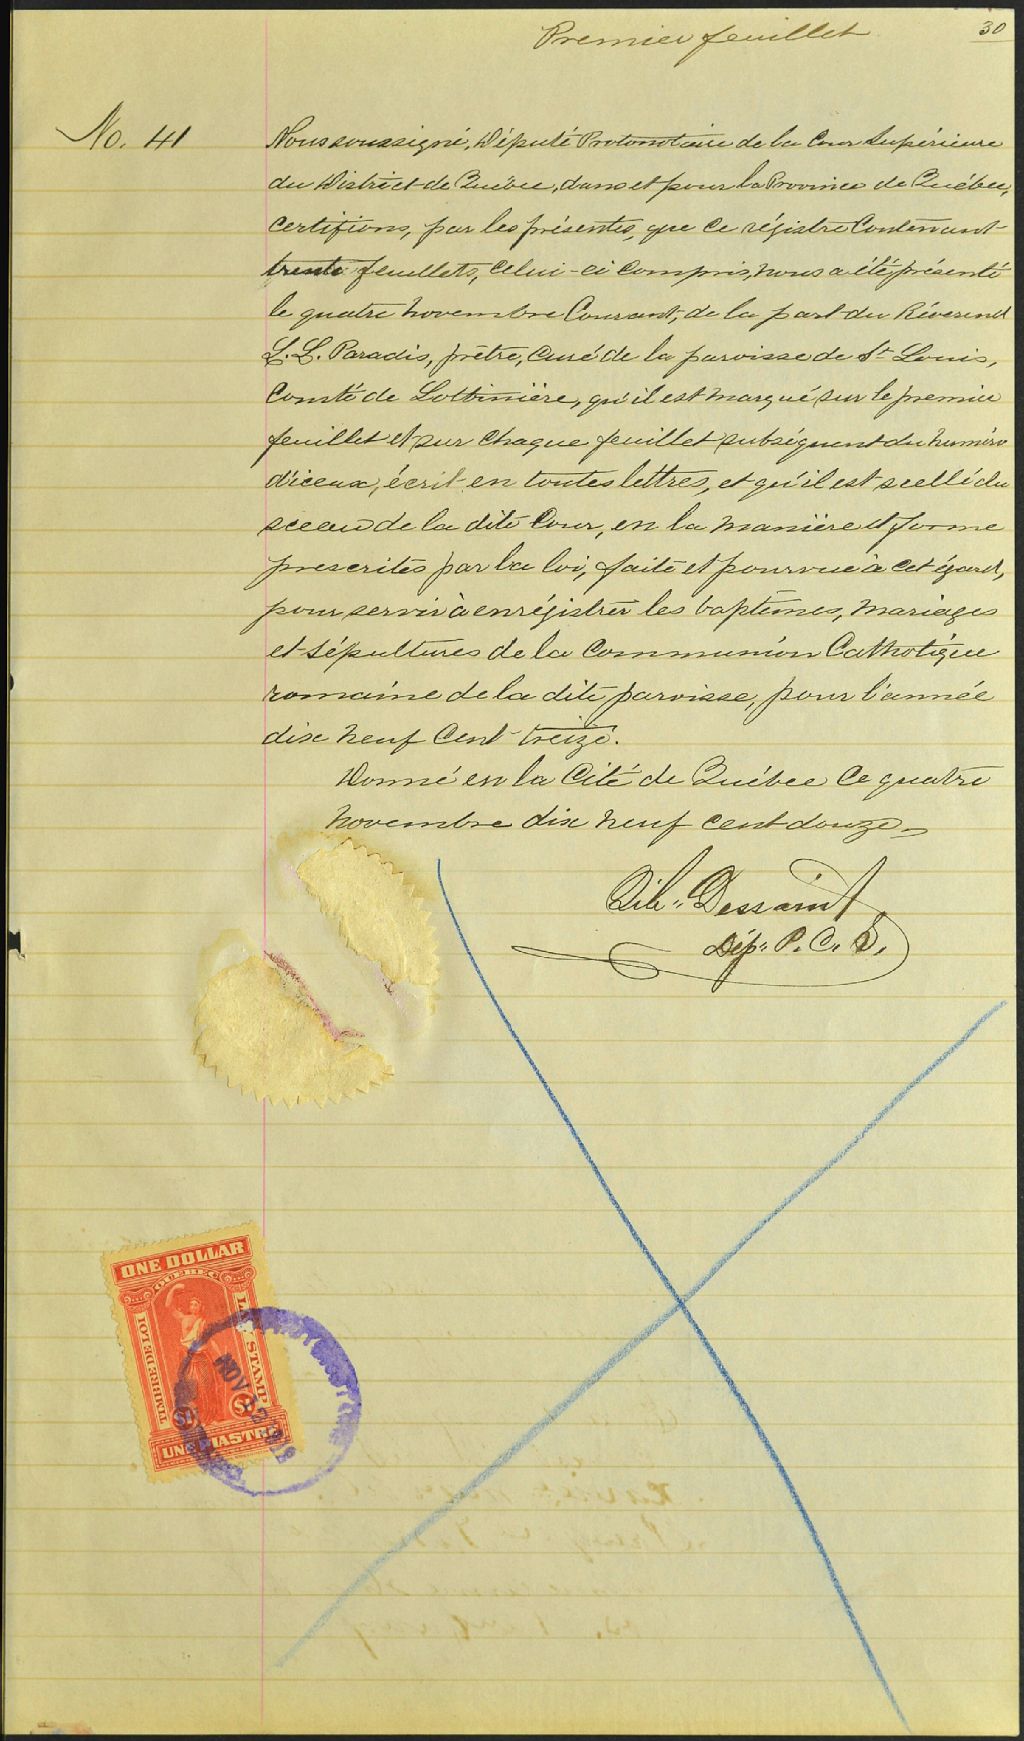 Premier feuillet
30
No. 41
Nous soussigné, Député Protonotaire de la Cour Supérieure
du District de Québec, dans et pour la Province de Québec,
certifions, par les présentes, que ce régistre contenant
trente feuillets, celui-ci compris, nous a été présenté
le quatre novembre Courant, de la part du Révérend
L. L. Paradis, prêtre, curé de la paroisse de St Louis,
Comté de Lotbinière, qu'il est marqué sur le premier
feuillet et sur chaque feuillet subséquent du numéro
d'iceux, écrit en toutes lettres, et qu'il est scellé du
sceau de la dite Cour, en la manière et forme
prescrites par la loi, faite et pourvue à cet égard,
pour servir à enrégistrer les baptêmes, mariages
et sépultures de la Communion Catholique
romaine de la dite paroisse, pour l'année
dix neuf cent treize.
Donné en la Cité de Québec ce quatre
novembre dix neuf cent douze
Dessaint
Dép. P. C. S.
ONE DOLLAR
QUEBEC
TIMBRE DE LOI
LAW STAMP
$1 $1
UNE PIASTRE
NOV